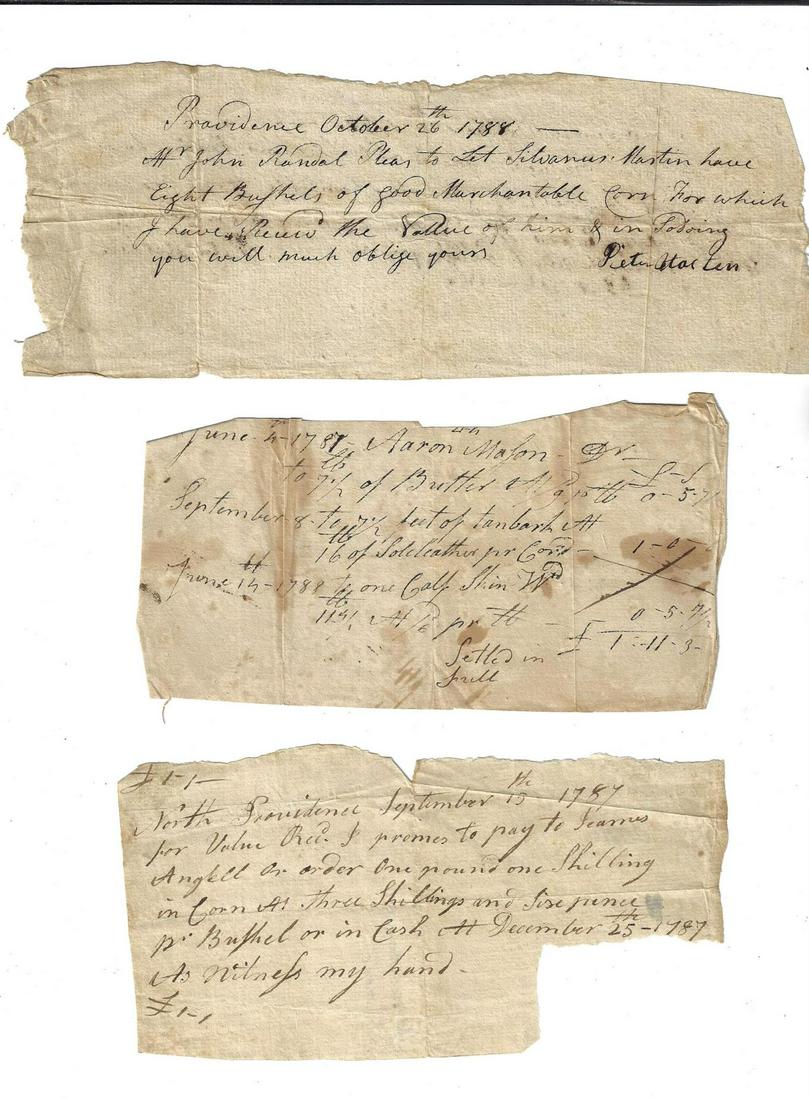 Providence October 26th 1788 —
Mr John Randal Pleas to Let Silvanus Martin have
Eight Bushels of good Marchantable Corn For which
I have Receivd the Vallue of him & in Sodoing
you will much oblige yours Peter
June 4th - 1787 - Aaron Mason - Dr -
to lb 7 1/2 of Butter At 9d pr lb 0 - 5 - 7 1/2
September 8 - to 7 1/2 feet of tanbark At
16 of Soleleather pr Cord - 1 - 0 -
June 14th - 1788 to one Calf Skin Wd
lb 11 1/4 At /6 pr lb - 0 - 5 - 7 1/2
£ 1 - 11 - 3 -
Setled in
full
£ 1-1-
North Providence September 15th 1787
for Value Recd. I promes to pay to Jeames
Angell Or order One pound one Shilling
in Corn At three Shillings and Sixepence
pr Bushel or in Cash At December 25th - 1787
As Witness my hand -
£ 1-1